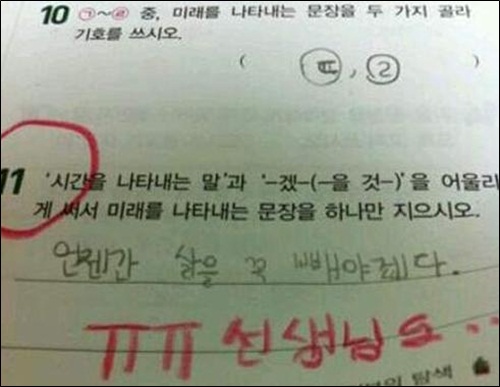 10 ㉠~㉣ 중, 미래를 나타내는 문장을 두 가지 골라
기호를 쓰시오.
( , ② )
11 '시간을 나타내는 말'과 '-겠-(-을 것-)'을 어울리
게 써서 미래를 나타내는 문장을 하나만 지으시오.
언젠간 살을 꼭 빼야게다.
ㅠㅠ 선생님도..
탐색